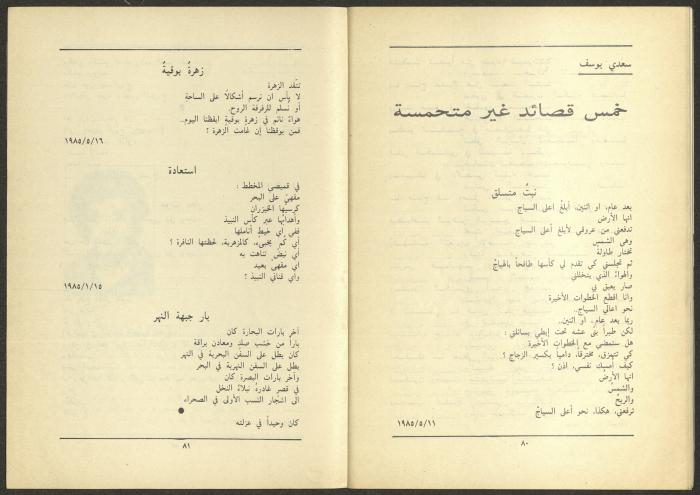 سعدي يوسف
خمس قصائد غير متحمسة
نبتٌ متسلق
بعد عام، او اثنين، أبلغُ أعلى السياج
انها الأرض
تدفعني من عروقي لأبلغ أعلى السياج
وهي الشمس
تختار طاولة
ثم تجلسني كي تقدم لي كأسها طافحاً بالهياجْ
والهواءُ الذي يتخللني
صار يعبق بي
وانا اقطع الخطوات الأخيرة
نحو اعالي السياج..
ربما بعد عام، او اثنين..
لكن طيراً بنى عشه تحت إبطي يسائلني :
هل ستمضي مع الخطوات الأخيرة
كي تتهزق، مخترقاً، دامياً بكسير الزجاج ؟
كيف أمسك نفسي، اذن ؟
انها الأرضُ
والشمسُ
والريحُ
ترفعني، هكذا، نحو أعلى السياجْ
١٩٨٥/٥/١١
٨٠
زهرةٌ بوقيةٌ
تتقد الزهرة
لا بأس ان نرسم أشكالًا على الساحةِ
أو نُسلم للرفرفة الروح.
هواءٌ نائم في زهرةٍ بوقيةٍ ايقظنا اليوم..
فمن يوقظنا إن غامت الزهرة ؟
١٩٨٥/٥/١٦
استعادة
في قميصي المخطط :
مقهىً على البحر
كرسيُّها الخيزران
وأهدابُها عبر كأس النبيذ
ففي أي خيطٍ أناملها
أي كمٍّ يخبىء، كالمزهرية، لحظتها النافرة ؟
أي نبضٍ تناهت به
أي مقهىً بعيد
وأي قناني النبيذ ؟
١٩٨٥/١/١٥
بار جبهة النهر
آخر بارات البحارة كان
باراً من خشب صلدٍ ومعادن براقة
كان يطل على السفن البحرية في النهر
يطل على السفن النهرية في البحر
وآخر بارات البصرة كان
في قصر غادرهُ نبلاءُ النخل
الى اشجار النسب الأولى في الصحراء
كان وحيداً في عزلته
٨١